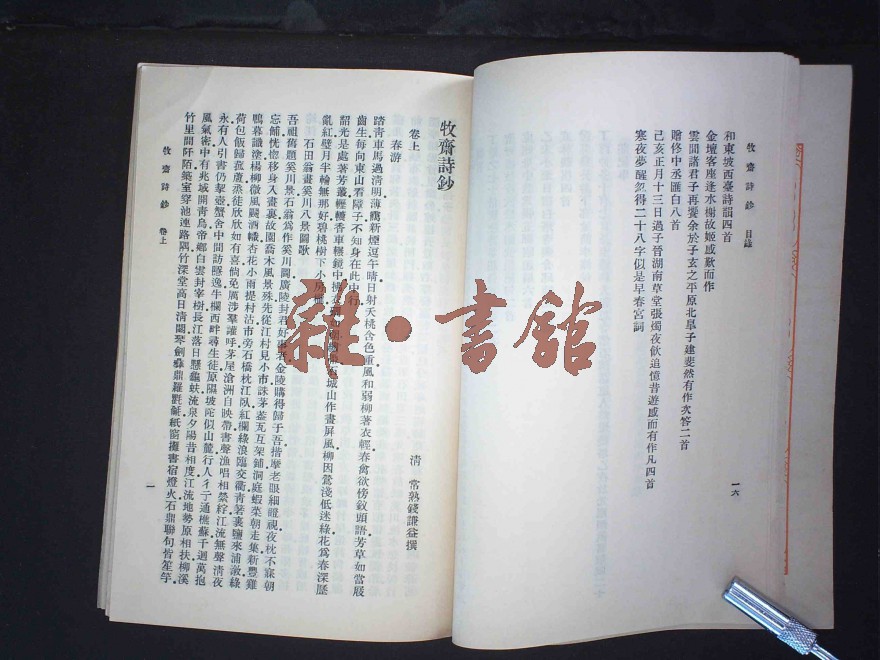 牧齋詩鈔 目錄
一六
和東坡西臺詩韻四首
金壇客座逢水榭故姬感歎而作
雲間諸君子再饗余於子玄之平原北皐子建斐然有作次答二首
贈佟中丞匯白八首
己亥正月十三日過子晉湖南草堂張燭夜飲追憶昔遊感而有作凡四首
寒夜夢醒忽得二十八字似是早春宮詞
牧齋詩鈔
清 常熟錢謙益撰
卷上
春游
踏青車馬過清明薄靄新煙逗午晴日射夭桃含色重風和弱柳著衣輕春禽欲傍釵頭語芳草如當屐
齒生每向東山看障子不知身在此中行
韶光是處著芳叢轣轆香車輾鏡中
城山作畫屏風柳因鶯淺低迷綠花爲春深歷
亂紅壁月半輪無那好碧桃樹下小房櫳
石田翁畫奚川八景圖歌
吾祖舊題奚川景石翁爲作奚川圖廣陵封君好事者金陵購得歸于吾揩摩老眼細證視夜枕不寐朝
忘餔恍惚移身入畫裏故園喬木風景殊先從江村見小市誅茅葢瓦互架鋪洞庭蝦菜朝走集新豐雞
鴨暮讙塗楊柳微風颺酒幟杏花小雨提村沽市旁石橋枕江臥紅欄綠浪臨交衢青箬裹鹽來浦漵綠
荷包飯歸菰蘆蒸徒欣欣如有喜倘免厲涉羣讙呼茅屋滄洲自映帶書聲漁唱相縈紆江流無聲清夜
永有人引書仍挈壺蟹舍中間訪隱逸牛欄西畔尋生徒原隰坡陀似山麓行人彳亍通樵蘇千迴萬抱
風氣密中有兆域開青烏帝鄉白雲封宰樹長江落日懸龜蚨流泉夕陽昔相度江流地勢原相扶柳溪
竹里間阡陌築室穿池連路隅竹深堂高日清閟琴劍彝鼎羅㲪毹紙窗攤書宿燈火石鼎聯句皆笙竽
牧齋詩鈔 卷上
一
雜·書館